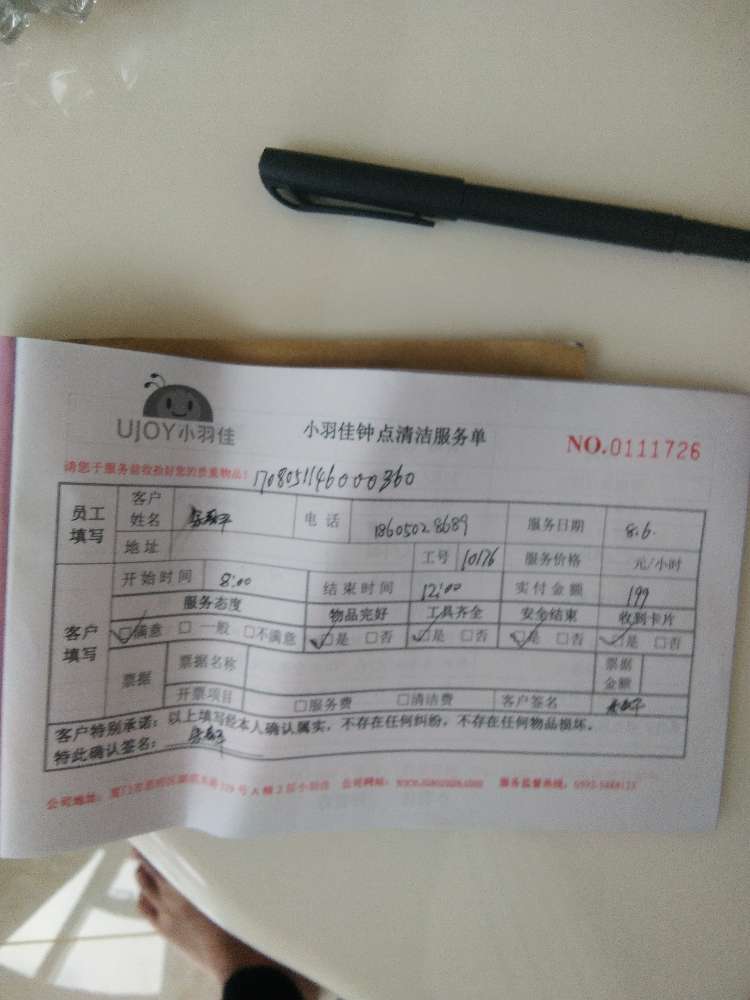 UJOY小羽佳
小羽佳钟点清洁服务单
NO.0111726
请您于服务前收拾好您的贵重物品!
1708051146000360
员工填写 客户姓名 电话 18605028689 服务日期 8.6.
地址 工号 10176 服务价格 元/小时
客户填写 开始时间 8:00 结束时间 12:00 实付金额 199
服务态度 物品完好 工具齐全 安全结束 收到卡片
☑满意 □一般 □不满意 ☑是 □否 ☑是 □否 ☑是 □否 ☑是 □否
票据 票据名称 票据金额
开票项目 □服务费 □清洁费 客户签名
客户特别承诺:以上填写经本人确认属实,不存在任何纠纷,不存在任何物品损坏。
特此确认签名:
公司地址: 号A幢2层小羽佳 公司网站: 服务监督热线: